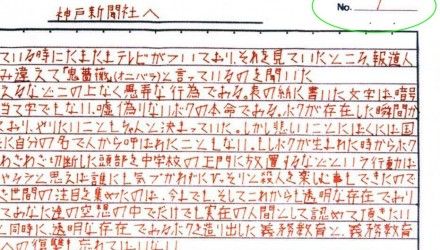 神戸新聞社へ
No. 1
ている時にたまたまテレビがついており、それを見ていたところ、報道人
み違えて「鬼薔薇」(オニバラ)と言っているのを聞いた
えるなどこの上なく愚弄な行為である。表の紙に書いた文字は、暗号
当て字でもない。嘘偽りないボクの本命である。ボクが存在した瞬間か
おり、やりたいこともちゃんと決まっていた。しかし悲しいことにぼくには国
に自分の名で人から呼ばれたこともない。もしボクが生まれた時からボク
わざわざ切断した頭部を中学校の正門に放置するなどという行動は
と思えば誰にも気づかれずにひっそりと殺人を楽しむ事もできたので
世間の注目を集めたのは、今までも、そしてこれからも透明な存在であり
てあなた達の空想の中でだけでも実在の人間として認めて頂きたい
同時に、透明な存在であるボクを造り出した義務教育と、義務教育
への復讐も忘れてはいない